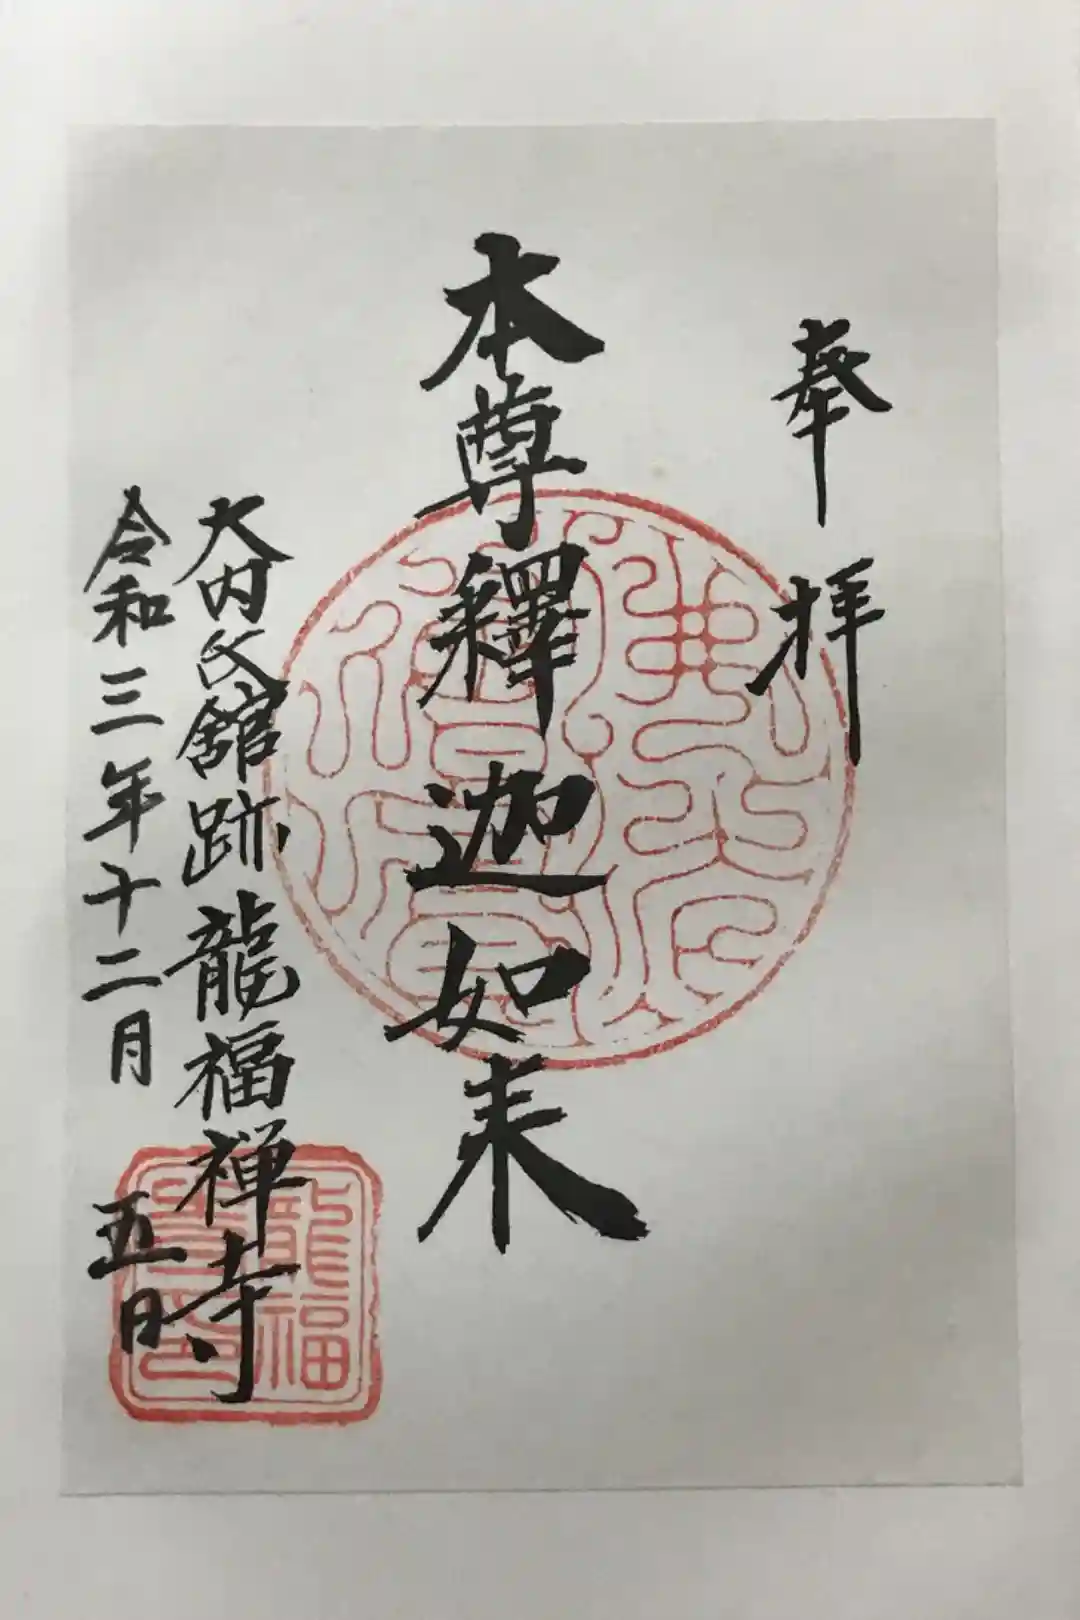 奉拝
本尊釋迦如来
大内氏館跡龍福禅寺
令和三年十二月五日
龍福